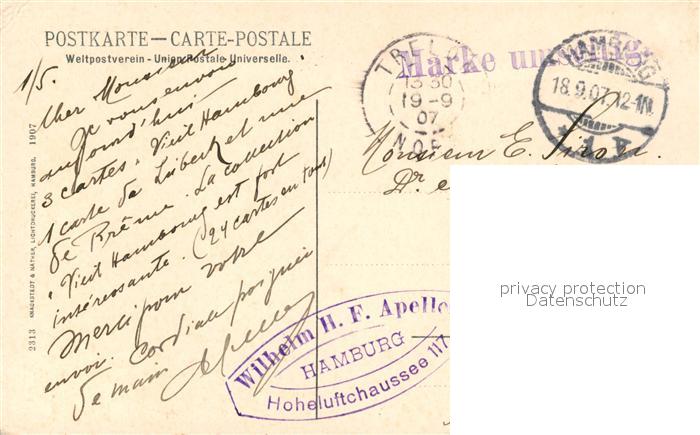 POSTKARTE — CARTE-POSTALE
Weltpostverein - Union Postale Universelle.
Marke ungültig.
TRELON
13 30
19-9
07
NORD
HAMBURG
18.9.07.12-1N.
* 1 A *
1/5.
Cher Monsieur
Je vous envoie
aujourd'hui
3 cartes "Vieil Hambourg"
1 carte de Lübeck et une
de Brême. La collection
"Vieil Hambourg" est fort
intéressante. (24 cartes en tout)
Merci pour votre
envoi. Cordiale poignée
de main
Monsieur E. Siron.
Dr.
Wilhelm H. F. Apello
HAMBURG
Hoheluftchaussee 117
2313 KNACKSTEDT & NÄTHER, LICHTDRUCKEREI, HAMBURG. 1907
privacy protection
Datenschutz